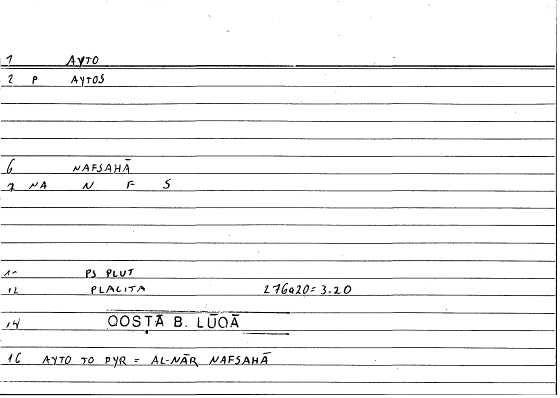 1 AYTO
2 P AYTOS
6 NAFSAHĀ
7 NA N F S
10 PS PLUT
12 PLACITA 276a20=3.20
14 QOSṬĀ B. LŪQĀ
16 AYTO TO PYR = AL-NĀR NAFSAHĀ